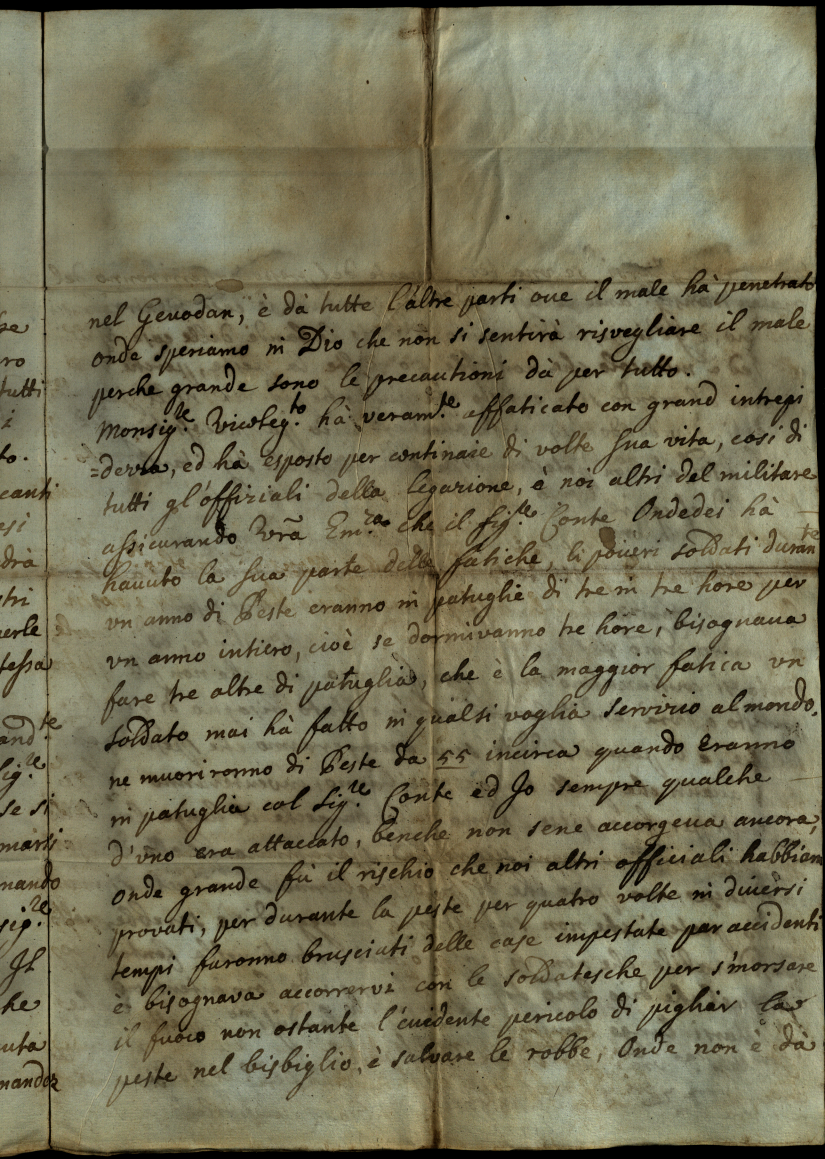 nel Gevodan, è dà tutte l'altre parti ove il male hà penetrato
onde speriamo in Dio che non si sentirà risvegliare il male
perche grande sono le precautioni dà per tutto.
Monsig.re Viceleg.to hà veram.te affaticato con grand intrepi
=dezza, ed hà esposto per continaie di volte sua vita, cosi di
tutti gl'offiziali della legazione, è noi altri del militare
assicurando Vrã Em.za che il Sig.re Conte Ondedei hà
hauuto la sua parte delle fatiche, li poueri soldati duran.te
vn anno di Peste eranno in patuglie di tre in tre hore per
vn anno intiero, cioè se dormivanno tre hore, bisognaua
fare tre altre di patuglia, che è la maggior fatica vn
soldato mai hà fatto in qualsi voglia servizio al mondo,
ne muorironno di Peste da 55 incirca quando eranno
in patuglia col Sig.re Conte ed Jo sempre qualche
d'vno era attaccato, benche non sene accorgeua ancora,
onde grande fù il rischio che noi altri officiali habbiam
provati, per durante la peste per quatro volte in diuersi
tempi furonno brusciati delle case impestate par accidenti
è bisognava accorrervi con le soldatesche per smorsare
il fuoco non ostante l'euidente pericolo di pigliar la
peste nel bisbiglio, è salvare le robbe, Onde non è dà
ro
tutti
i
to.
canti
esi
drà
stri
verle
tessa
and.te
Sig.re
se si
marsi
nando
sig.re
Il
he
uta